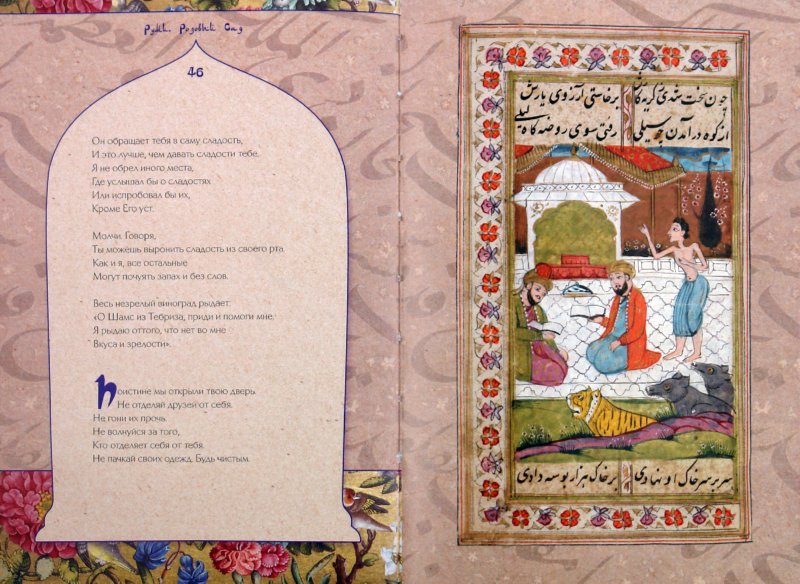 Руми. Розовый Сад
46
Он обращает тебя в саму сладость,
И это лучше, чем давать сладости тебе.
Я не обрел иного места,
Где услышал бы о сладостях
Или испробовал бы их,
Кроме Его уст.
Молчи. Говоря,
Ты можешь выронить сладость из своего рта.
Как и я, все остальные
Могут почуять запах и без слов.
Весь незрелый виноград рыдает:
«О Шамс из Тебриза, приди и помоги мне.
Я рыдаю оттого, что нет во мне
Вкуса и зрелости».
Поистине мы открыли твою дверь.
Не отделяй друзей от себя.
Не гони их прочь.
Не волнуйся за того,
Кто отделяет себя от тебя.
Не пачкай своих одежд. Будь чистым.
چون سخت شدی گریه کارش برخاستی آرزوی یارش
از کوه درآمدن چو سیلی رفتی سوی روضه گاه لیلی
سر بر سر خاک او نهادی بر خاک هزار بوسه دادی